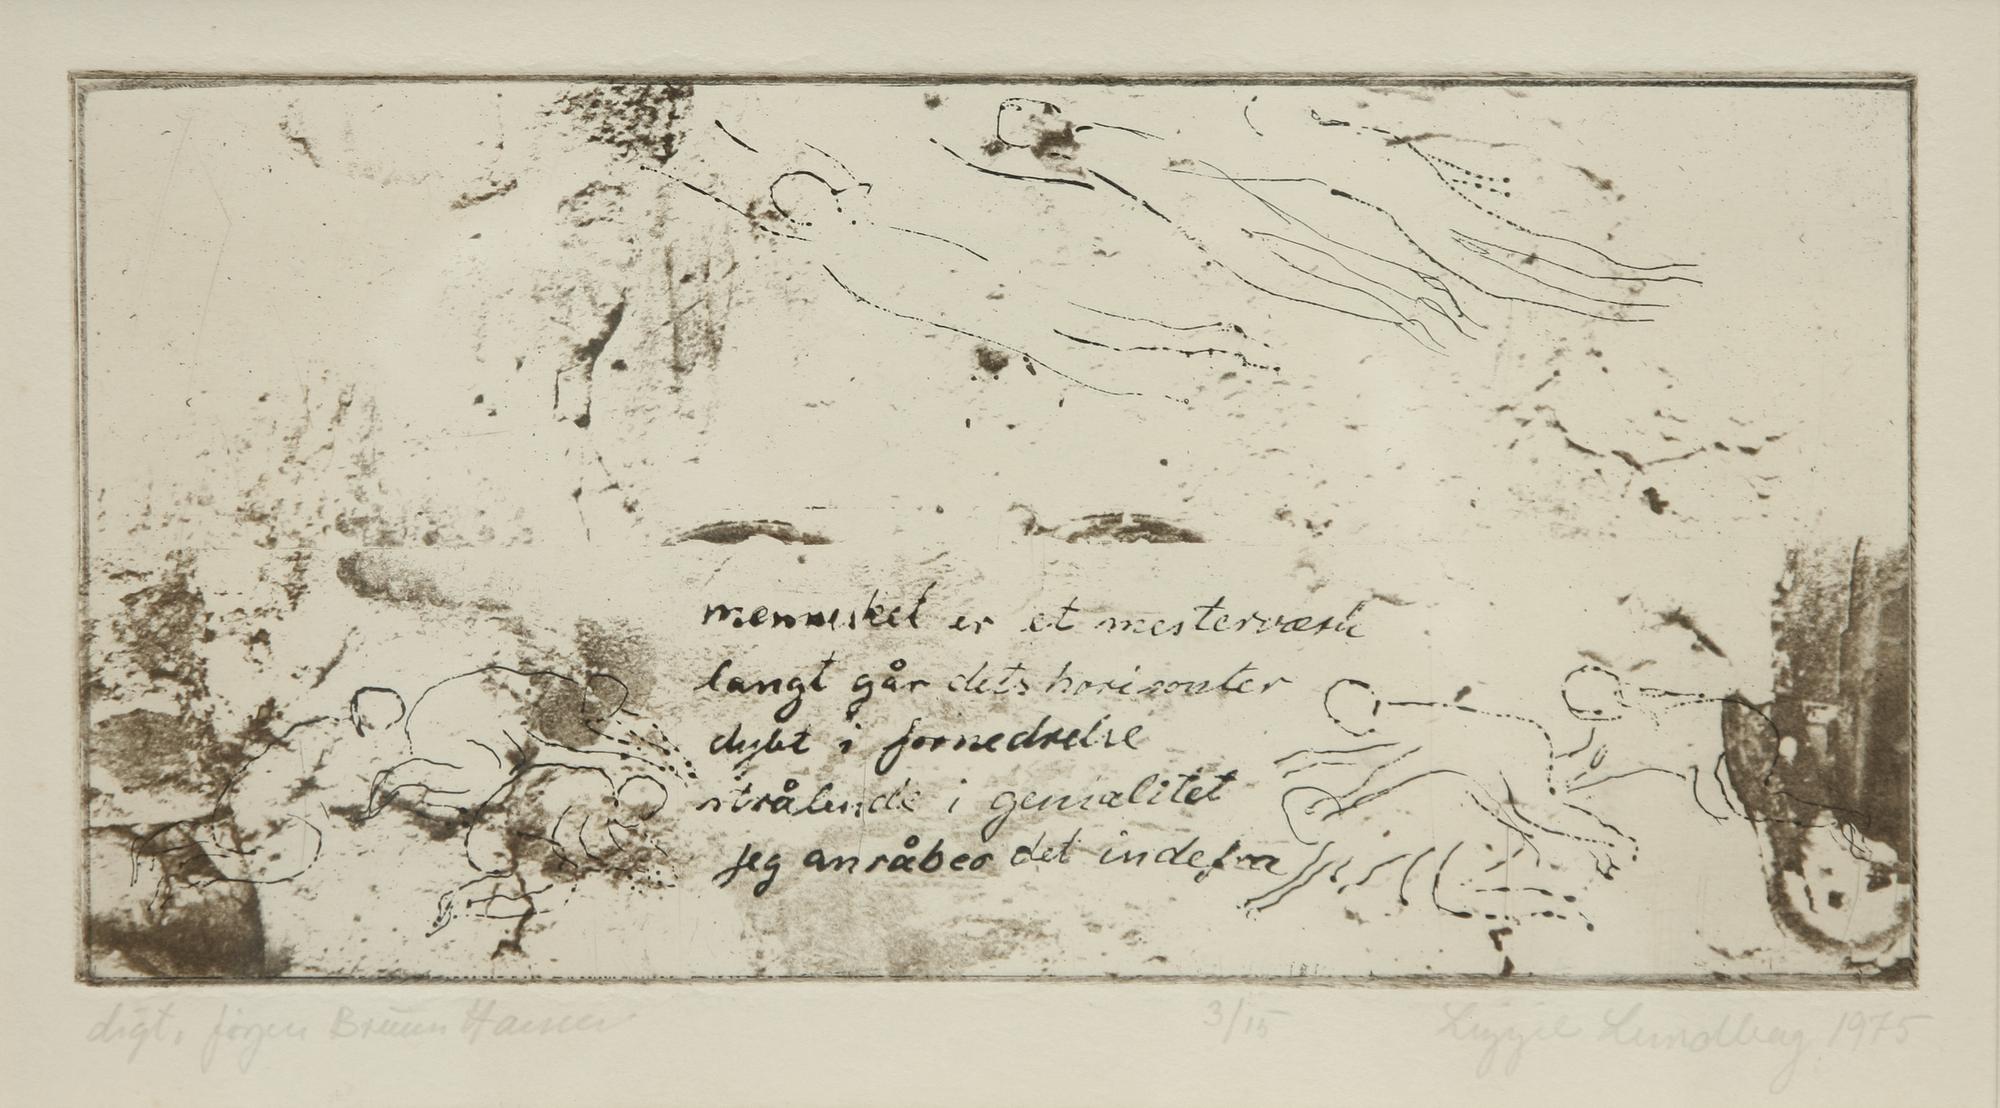 mennesket er et mesterværk
langt går dets horisonter
dybt i fornedrelse
strålende i genialitet
jeg anråber det indefra
digt, Jørgen Bruun Hansen
3/15
Lizzie Lundberg 1975